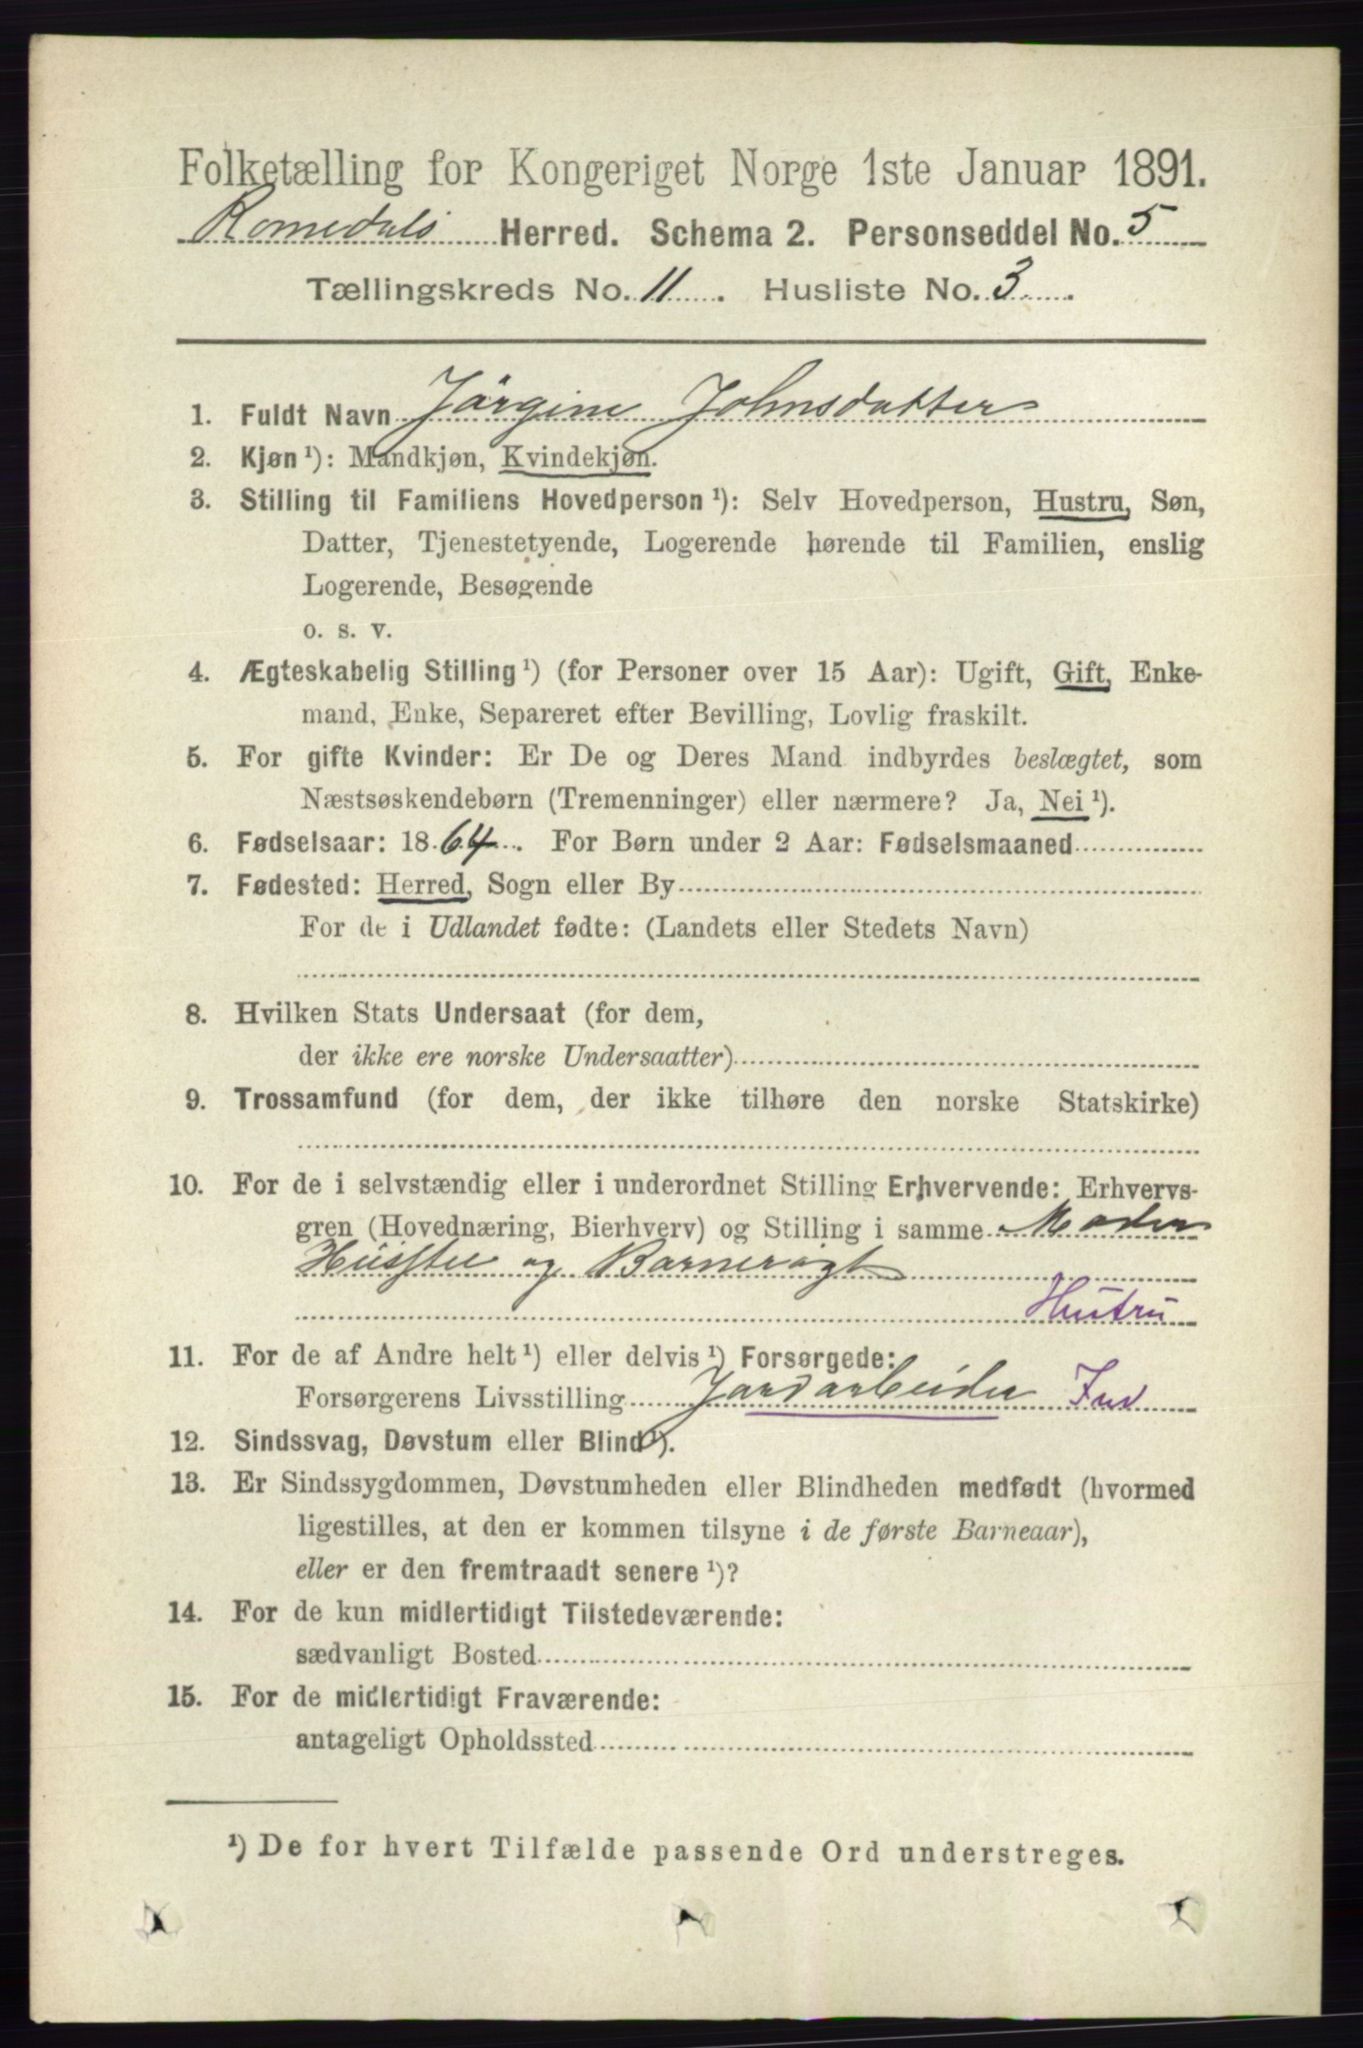 Folketælling for Kongeriget Norge 1ste Januar 1891.
Romedals Herred. Schema 2. Personseddel No. 5
Tællingskreds No. 11. Husliste No. 3.
1. Fuldt Navn Jörgine Johnsdatter
2. Kjøn ¹): Mandkjøn, Kvindekjøn.
3. Stilling til Familiens Hovedperson ¹): Selv Hovedperson, Hustru, Søn,
Datter, Tjenestetyende, Logerende hørende til Familien, enslig
Logerende, Besøgende
o. s. v.
4. Ægteskabelig Stilling ¹) (for Personer over 15 Aar): Ugift, Gift, Enke-
mand, Enke, Separeret efter Bevilling, Lovlig fraskilt.
5. For gifte Kvinder: Er De og Deres Mand indbyrdes beslægtet, som
Næstsøskendebørn (Tremenninger) eller nærmere? Ja, Nei ¹).
6. Fødselsaar: 1864. For Børn under 2 Aar: Fødselsmaaned
7. Fødested: Herred, Sogn eller By
For de i Udlandet fødte: (Landets eller Stedets Navn)
8. Hvilken Stats Undersaat (for dem,
der ikke ere norske Undersaatter)
9. Trossamfund (for dem, der ikke tilhøre den norske Statskirke)
10. For de i selvstændig eller i underordnet Stilling Erhvervende: Erhvervs-
gren (Hovednæring, Bierhverv) og Stilling i samme
og Barnerögt
Hustru
11. For de af Andre helt ¹) eller delvis ¹) Forsørgede:
Forsørgerens Livsstilling Jordarbeider Ind
12. Sindssvag, Døvstum eller Blind ¹).
13. Er Sindssygdommen, Døvstumheden eller Blindheden medfødt (hvormed
ligestilles, at den er kommen tilsyne i de første Barneaar),
eller er den fremtraadt senere ¹)?
14. For de kun midlertidigt Tilstedeværende:
sædvanligt Bosted
15. For de midlertidigt Fraværende:
antageligt Opholdssted
¹) De for hvert Tilfælde passende Ord understreges.